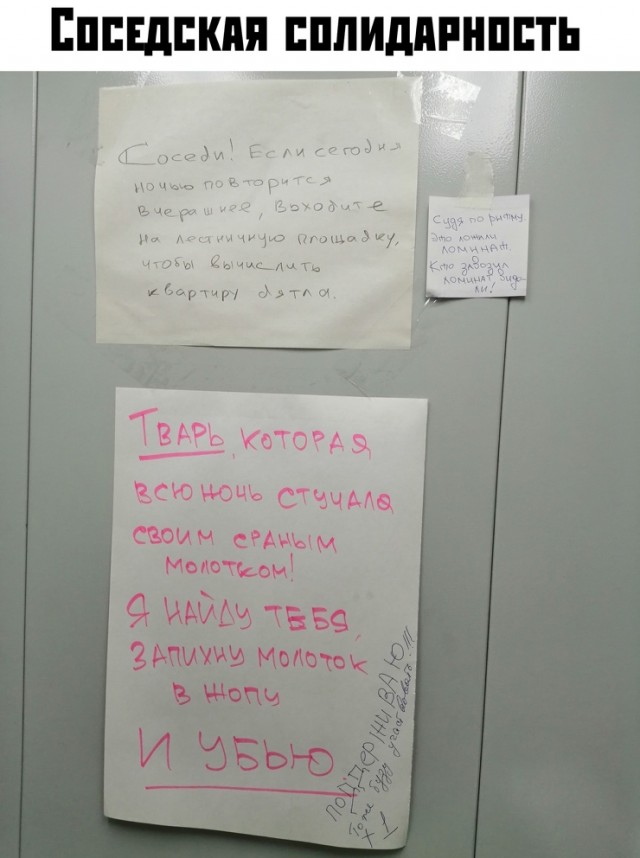 Соседская солидарность
Соседи! Если сегодня
ночью повторится
вчерашнее, выходите
на лестничную площадку,
чтобы вычислить
квартиру дятла.
Судя по ритму
это ложили
ломинат.
Кто завозил
ломинат виде
ли!
Тварь, которая
всю ночь стучала
своим сраным
молотком!
Я найду тебя,
запихну молоток
в жопу
и убью
Поддерживаю!!!
Тоже буду участвовать
+1